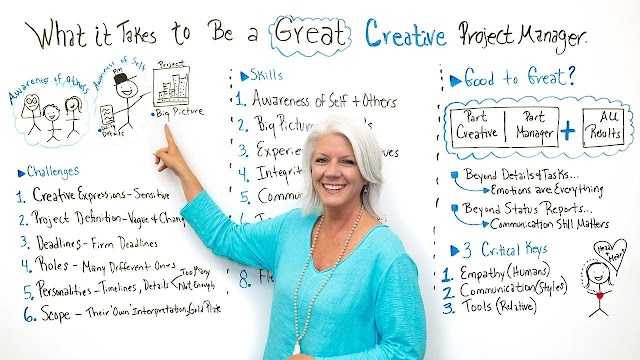 What it Takes to Be a Great Creative Project Manager.
Awareness of Others
Awareness of Self
PM
Details
Project
• Big Picture
Challenges
1. Creative Expressions - Sensitive
2. Project Definition - Vague & Chang
3. Deadlines - Firm Deadlines
4. Roles - Many Different Ones
5. Personalities - Timelines, Details
Too Many
Not Enough
6. Scope - Their "Own" Interpretation, Gold Plate
Skills
1. Awareness of Self + Others
2. Big Pictu
3. Exper
4. Integrit
5. Commu
6.
8.
Good to Great?
Part Creative
Part Manager
+
ALL Results
Beyond Details & Tasks...
Emotions are Everything
Beyond Status Reports...
Communication Still Matters
3 Critical Keys
1. Empathy (Humans)
2. Communication (Styles)
3. Tools (Relative)
Head
Heart